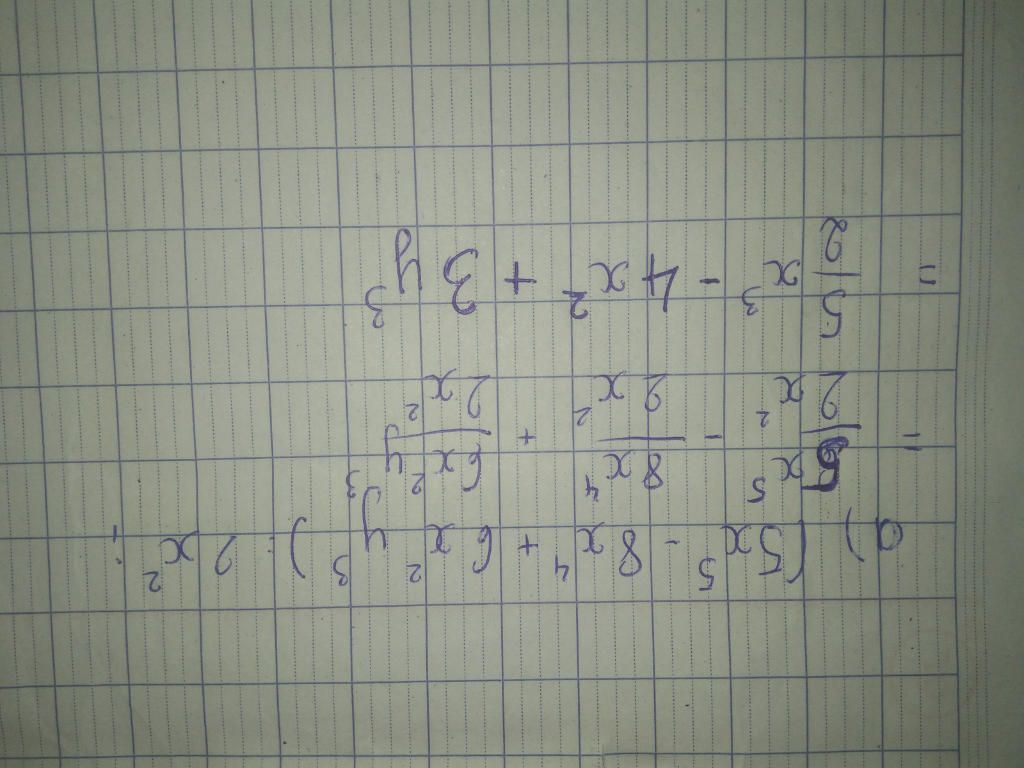 a) (5x⁵ - 8x⁴ + 6x²y³) : 2x² ÷
= 5x⁵/2x² - 8x⁴/2x² + 6x²y³/2x²
= 5/2 x³ - 4x² + 3y³